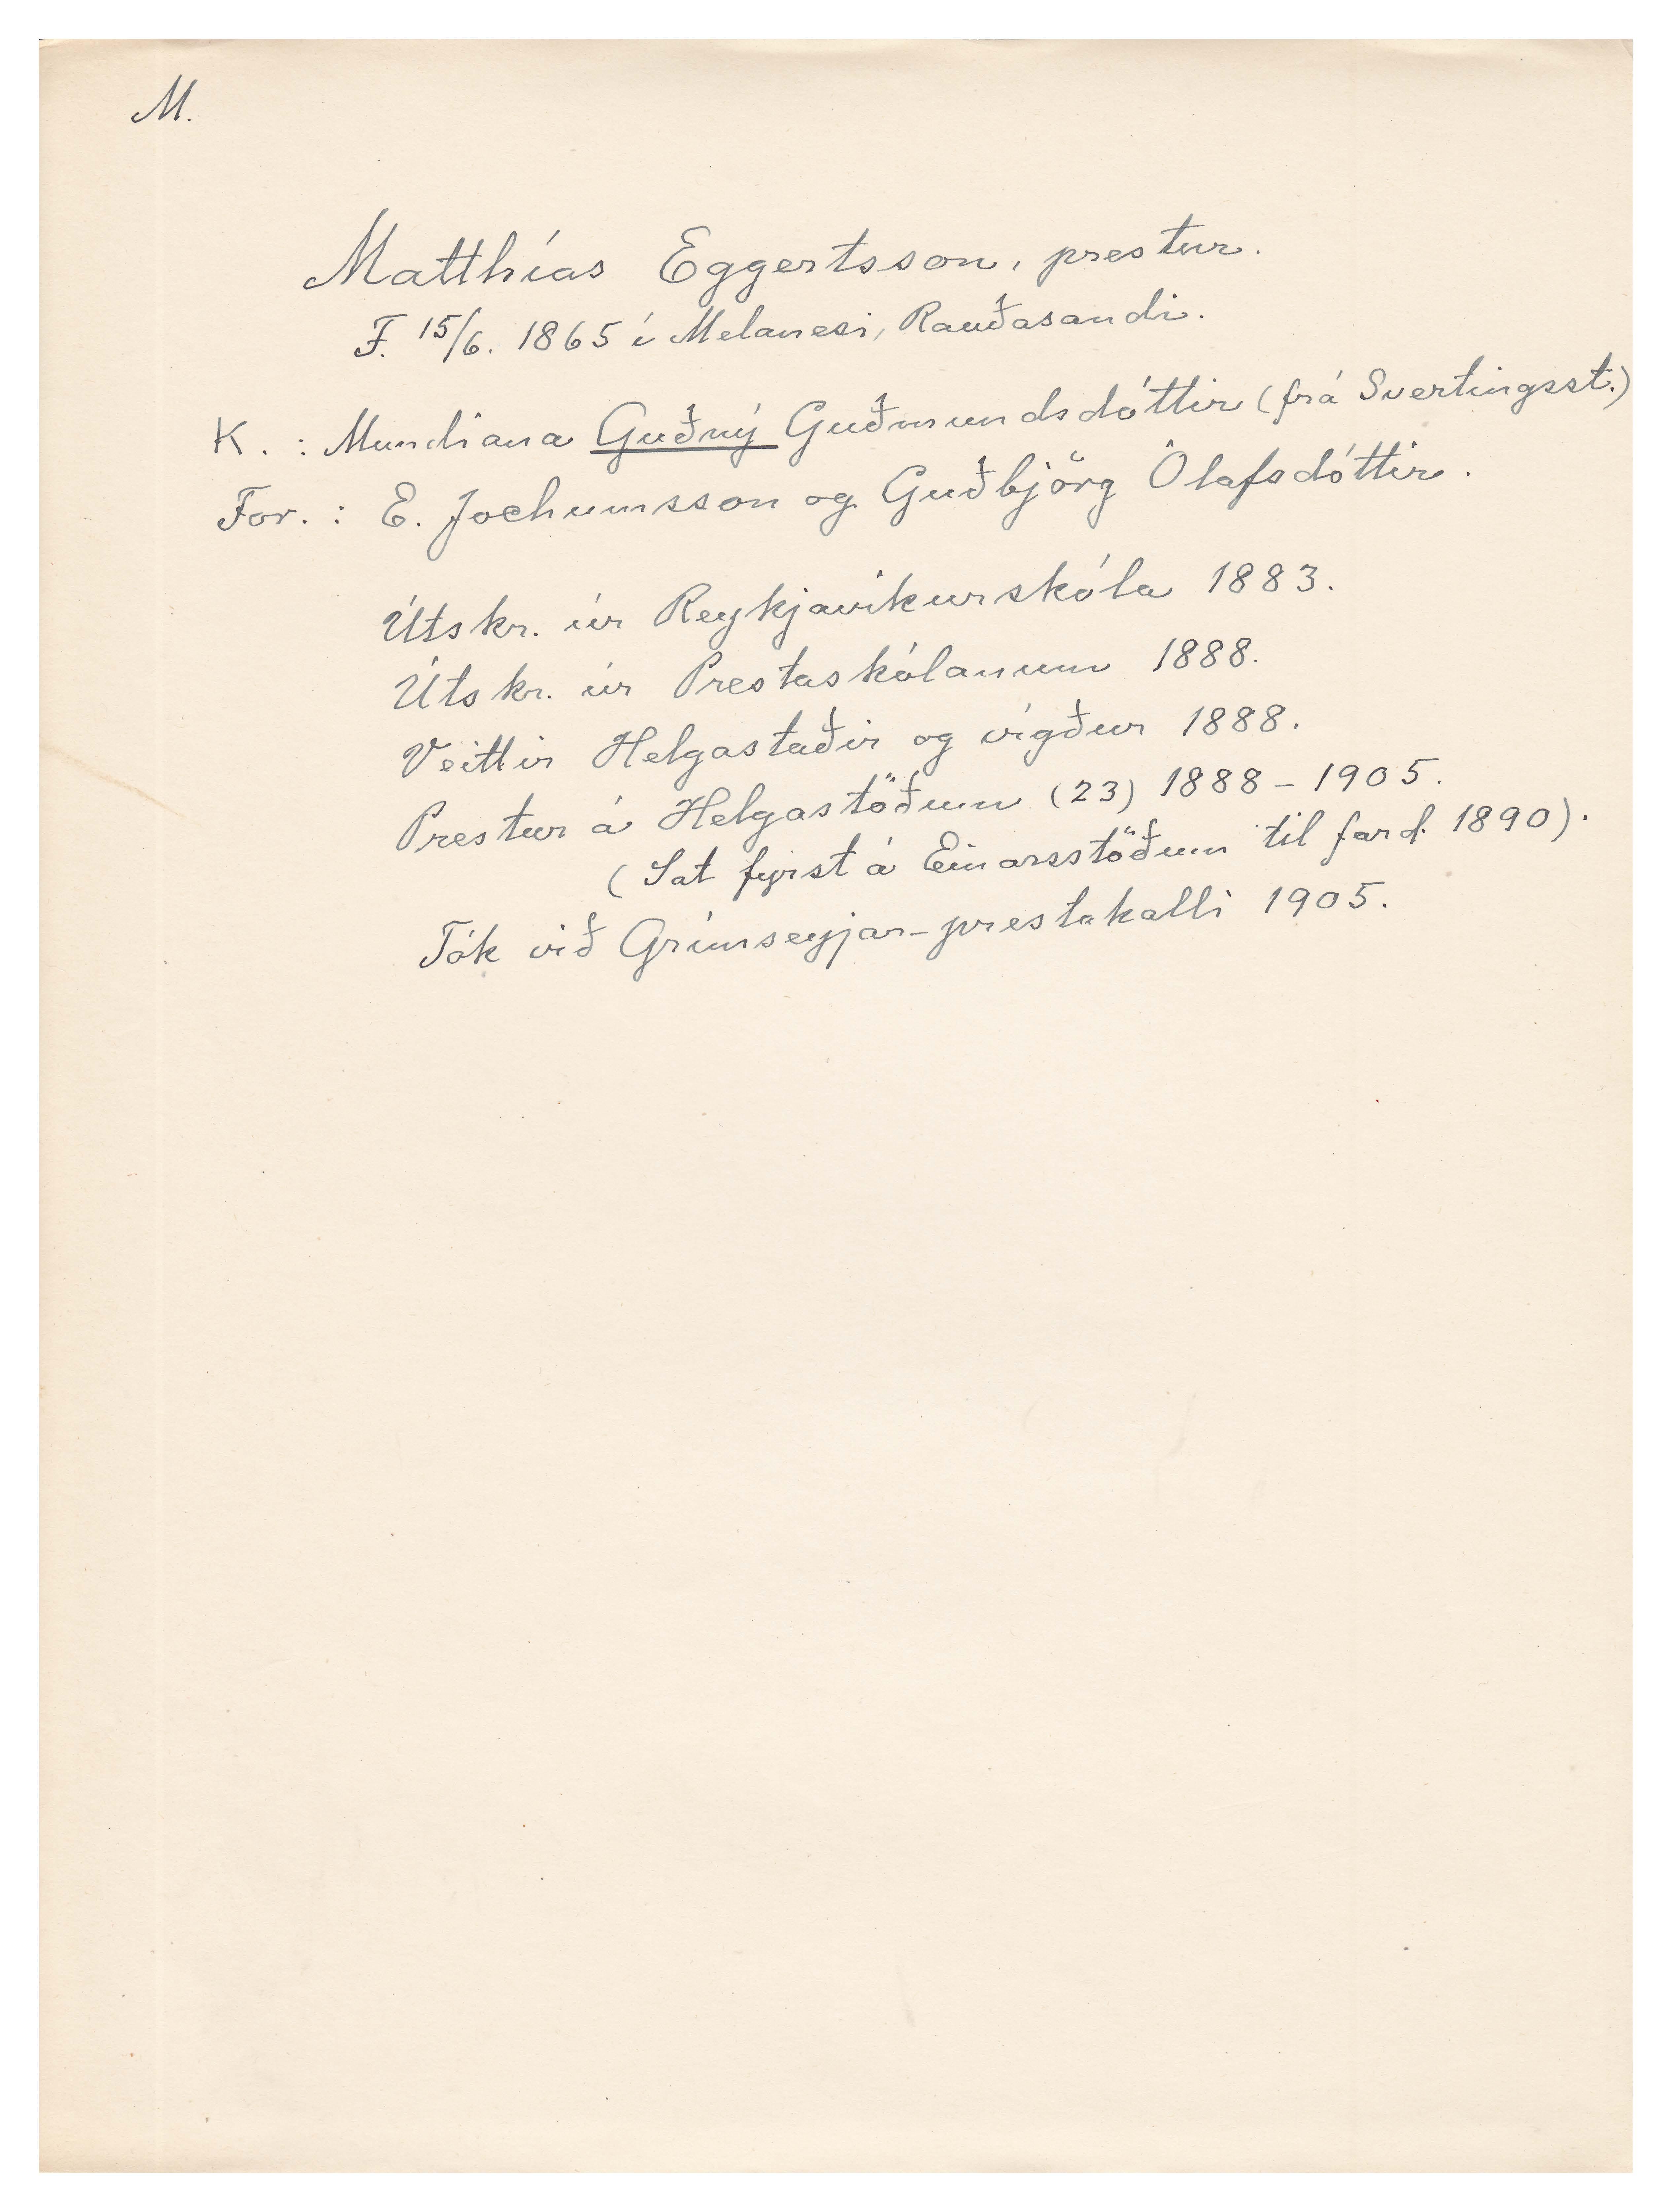 M.
Matthías Eggertsson, prestur.
F. 15/6. 1865 í Melanesi, Rauðasandi.
K. : Mundiana Guðný Guðmundsdóttir (frá Svertingsst.)
For. : E. Jochumsson og Guðbjörg Ólafsdóttir.
Útskr. úr Reykjavíkurskóla 1883.
Útskr. úr Prestaskólanum 1888.
Veittir Helgastaðir og vígður 1888.
Prestur á Helgastöðum (23) 1888 - 1905.
(Sat fyrst á Einarsstöðum til fard. 1890).
Tók við Grímseyjar-prestakalli 1905.